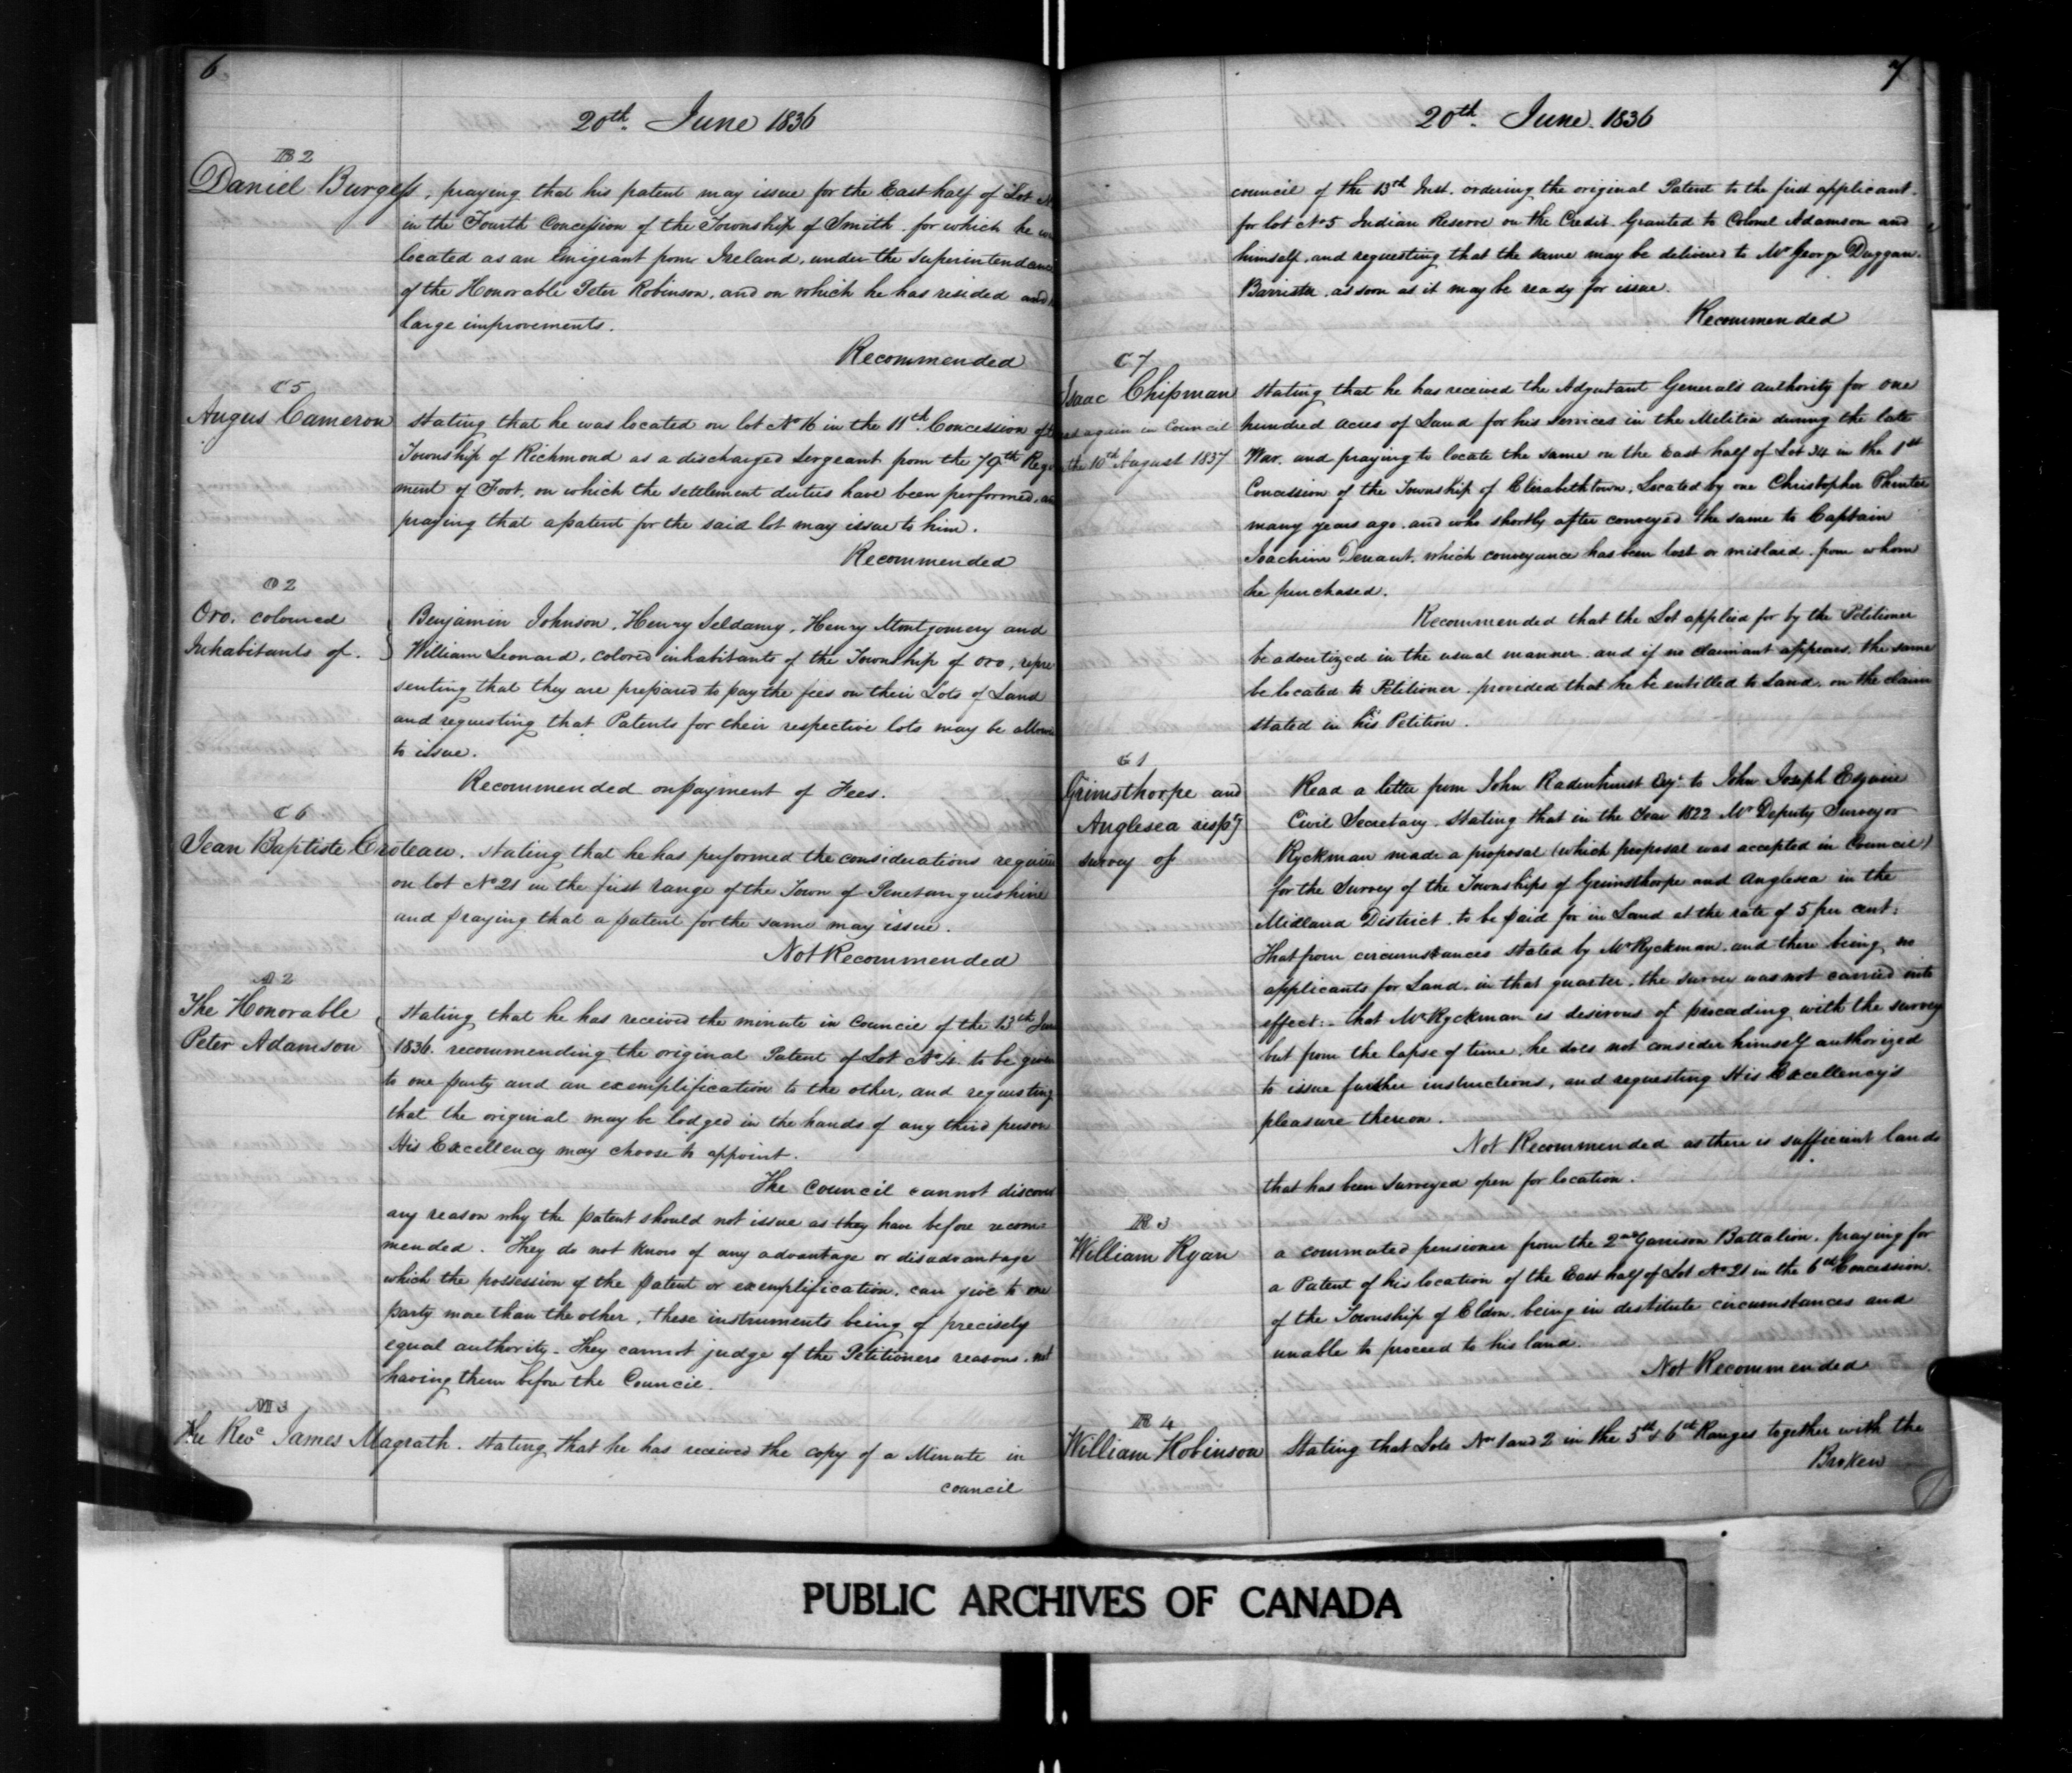 6
20th June 1836
B 2
Daniel Burgess, praying that his patent may issue for the East half of Lot
in the Fourth Concession of the Township of Smith for which he
located as an Emigrant from Ireland, under the Superintendance
of the Honorable Peter Robinson, and on which he has resided and
large improvements.
Recommended
C 5
Angus Cameron stating that he was located on lot No 16 in the 11th Concession of
Township of Richmond as a discharged Sergeant from the 79th Regi
ment of Foot, on which the settlement duties have been performed,
praying that a patent for the said lot may issue to him.
Recommended
O 2
Oro. coloured
Inhabitants of.
Benjamin Johnson, Henry Seldany, Henry Montgomery and
William Leonard, colored inhabitants of the Township of Oro, repre
senting that they are prepared to pay the fees on their Lots of Land
and requesting that Patents for their respective lots may be
to issue.
Recommended on payment of Fees.
C 6
Jean Baptiste Croteau. Stating that he has performed the considerations
on lot No 21 in the first range of the Town of Penetanguishine
and praying that a patent for the same may issue.
Not Recommended
A 2
The Honorable
Peter Adamson
stating that he has received the minute in Council of the 13th
1836. recommending the original Patent of Lot No 4. to be
to one party and an exemplification to the other, and requesting
that the original may be lodged in the hands of any third person
His Excellency may choose to appoint.
The Council cannot
any reason why the patent should not issue as they have before recom-
mended. They do not know of any advantage or disadvantage
which the possession of the patent or exemplification, can give to one
party more than the other, these instruments being of precisely
equal authority. They cannot judge of the Petitioners reasons, not
having them before the Council.
M 3
The Revd James Magrath. Stating that he has received the copy of a Minute in
council
7
20th June 1836
council of the 13th Inst. ordering the original Patent to the first applicant
for lot No 5 Indian Reserve on the Credit. Granted to Colonel Adamson and
himself, and requesting that the same may be delivered to Mr George Duggan
Barrister, as soon as it may be ready for issue.
Recommended
C 7
Isaac Chipman
again in Council
the 10th August 1837
stating that he has received the Adjutant Generals authority for one
hundred acres of Land for his services in the Militia during the late
War. and praying to locate the same on the East half of Lot 34 in the 1st
Concession of the Township of Elizabethtown, Located by one Christopher
many years ago. and who shortly after conveyed the same to Captain
Joachim Denaut, which conveyance has been lost or mislaid, from whom
he purchased.
Recommended that the Lot applied for by the Petitioner
be advertized in the usual manner and if no claimant appears, the same
be located to Petitioner. provided that he be entitled to Land, on the claim
stated in his Petition.
G 1
Grimsthorpe and
Anglesea respg
survey of
Read a letter from John Radenhurst Esqr to John Joseph Esquire
Civil Secretary. Stating that in the Year 1822 Mr Deputy Surveyor
Ryckman made a proposal (which proposal was accepted in Council)
for the Survey of the Townships of Grimsthorpe and Anglesea in the
Midland District. to be paid for in Land at the rate of 5 per cent:
That from circumstances stated by Mr Ryckman and there being no
applicants for Land, in that quarter, the survey was not carried into
effect:- that Mr Ryckman is desirous of proceeding with the survey
but from the lapse of time, he does not consider himself authorized
to issue further instructions, and requesting His Excellency's
pleasure thereon.
Not Recommended as there is sufficient lands
that has been surveyed open for location.
R 3
William Ryan a commuted pensioner from the 2nd Garrison Battalion. praying for
a Patent of his location of the East half of Lot No 21 in the 6th Concession
of the Township of Eldon, being in destitute circumstances and
unable to proceed to his land.
Not Recommended
R 4
William Robinson Stating that Lots Nos 1 and 2 in the 5th & 6th Ranges together with the
Broken
PUBLIC ARCHIVES OF CANADA